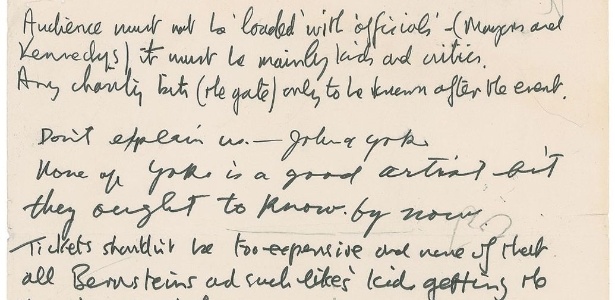 Audience must not be 'loaded' with 'officials' - (Mayors and
Kennedys) it must be mainly kids and critics.
Any charity bits (the gate) only to be known after the event.
Don't explain us. — John & Yoko
None of Yoko is a good artist bit
they ought to know. by now.
Tickets shouldn't be too expensive and none of that
all Bernsteins and such likes kids getting the